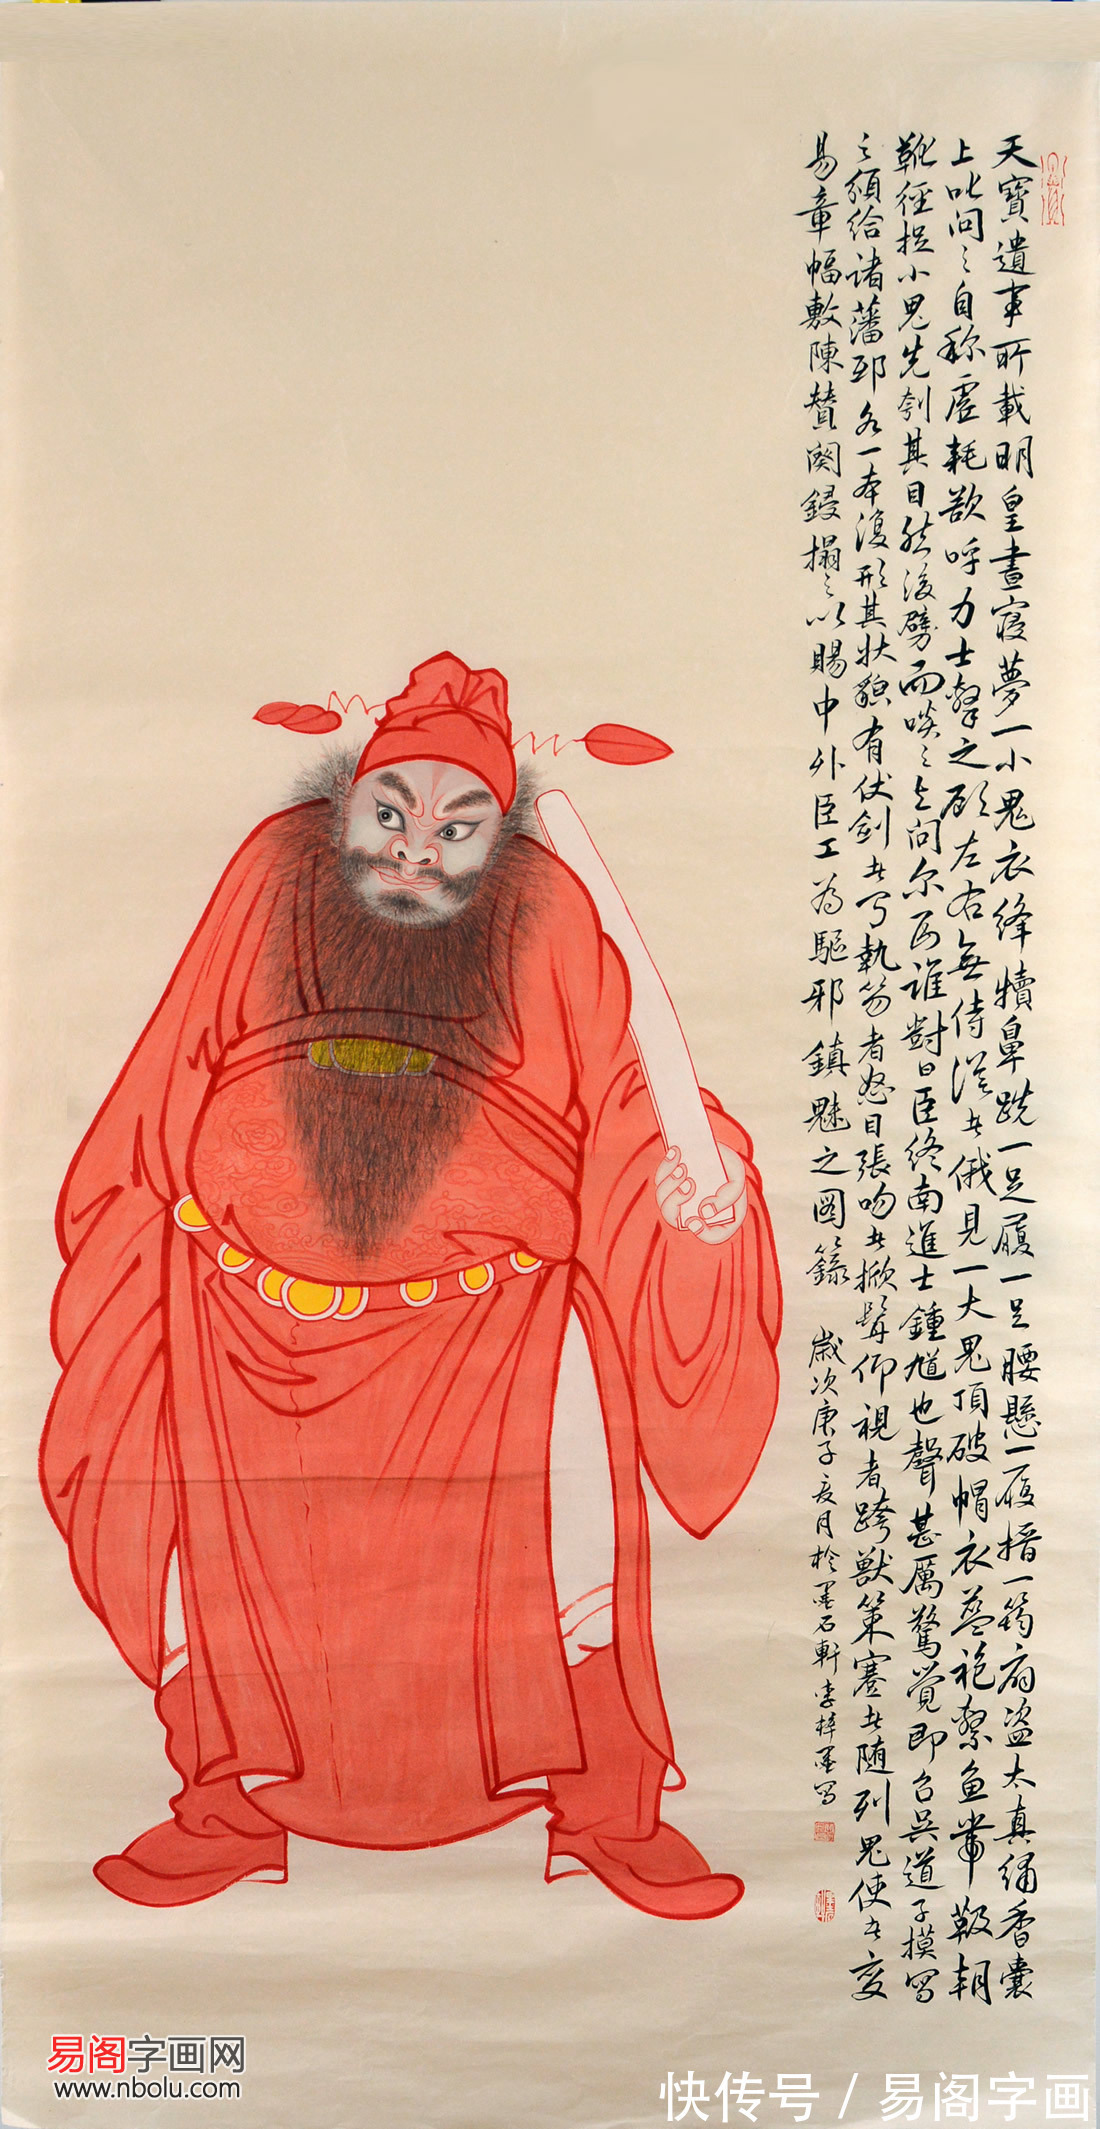 天寶遺事所載明皇晝寢夢一小鬼衣絳犢鼻跣一足履一足腰懸一履搢一筠扇盜太真繡香囊
上叱问之自称虛耗欲呼力士擊之顾左右無侍從者俄見一大鬼頂破帽衣蓝袍繫鱼带靸朝
靴徑捉小鬼先刳其目然後劈而啖之上问尔为谁對曰臣终南進士鍾馗也聲甚厲驚覺即召吳道子摸写
之頒给诸藩邸各一本復形其状貌有仗剑者有執笏者怒目張吻者掀髯仰視者跨獸策蹇者随列鬼使者变
易章幅敷陳賛闋鋟搨之以賜中外臣工为驅邪鎮魅之圖籙 歲次庚子夏月於墨石軒李梓墨写
易阁字画网
www.nbolu.com
快传号 / 易阁字画